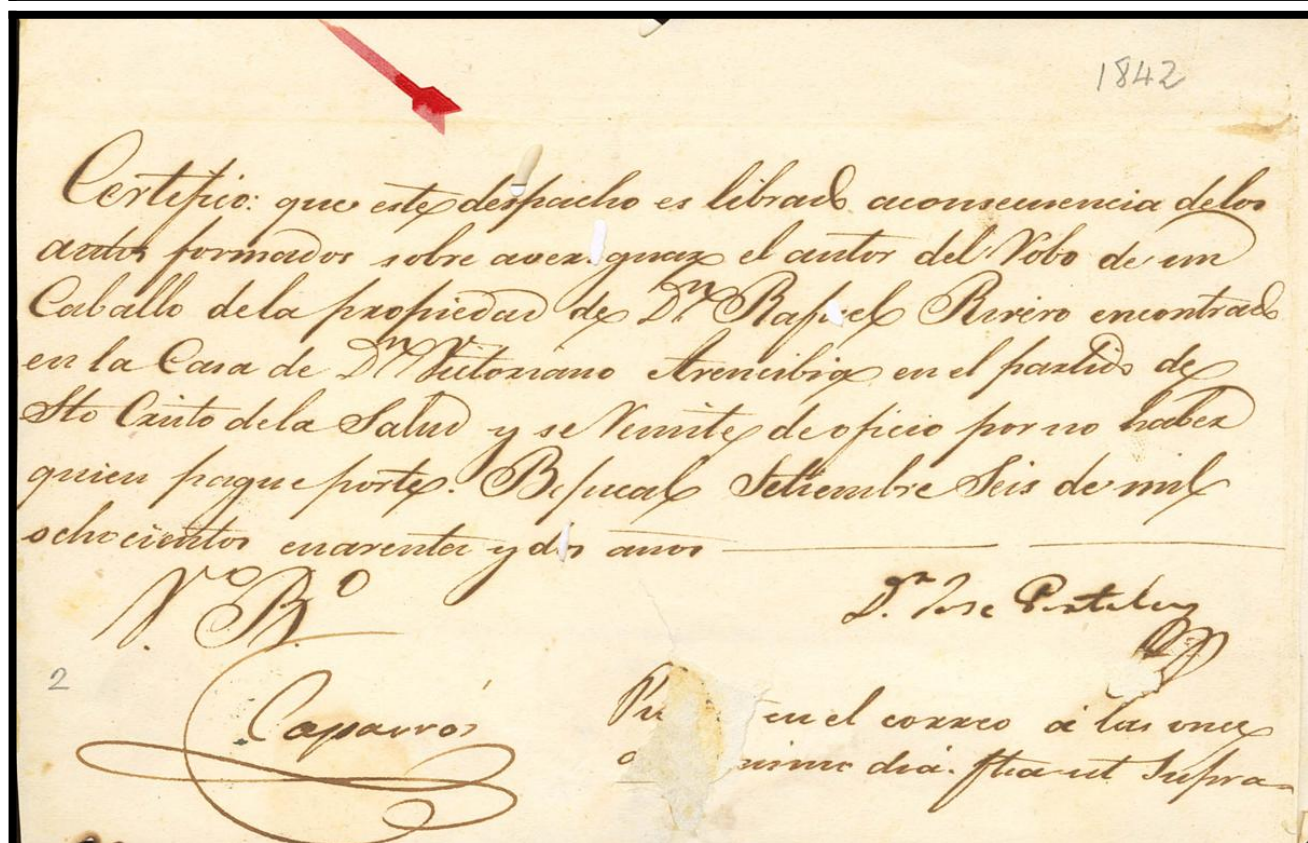 1842
Certifico: que este despacho es librado aconsecuencia delos
autos formados sobre averiguar el autor del Robo de un
Caballo dela propiedad de Dn Rafael Rivero encontrado
en la Casa de Dn Victoriano Arencibia en el partido de
Sto Cristo dela Salud y se Remite de oficio por no haber
quien pague porte. Bejucal Setiembre Seis de mil
ochocientos cuarenta y dos anos
V.o B.o
Dn Jose
2
Caparros
en el correo á las once
mismo dia. fha ut Supra